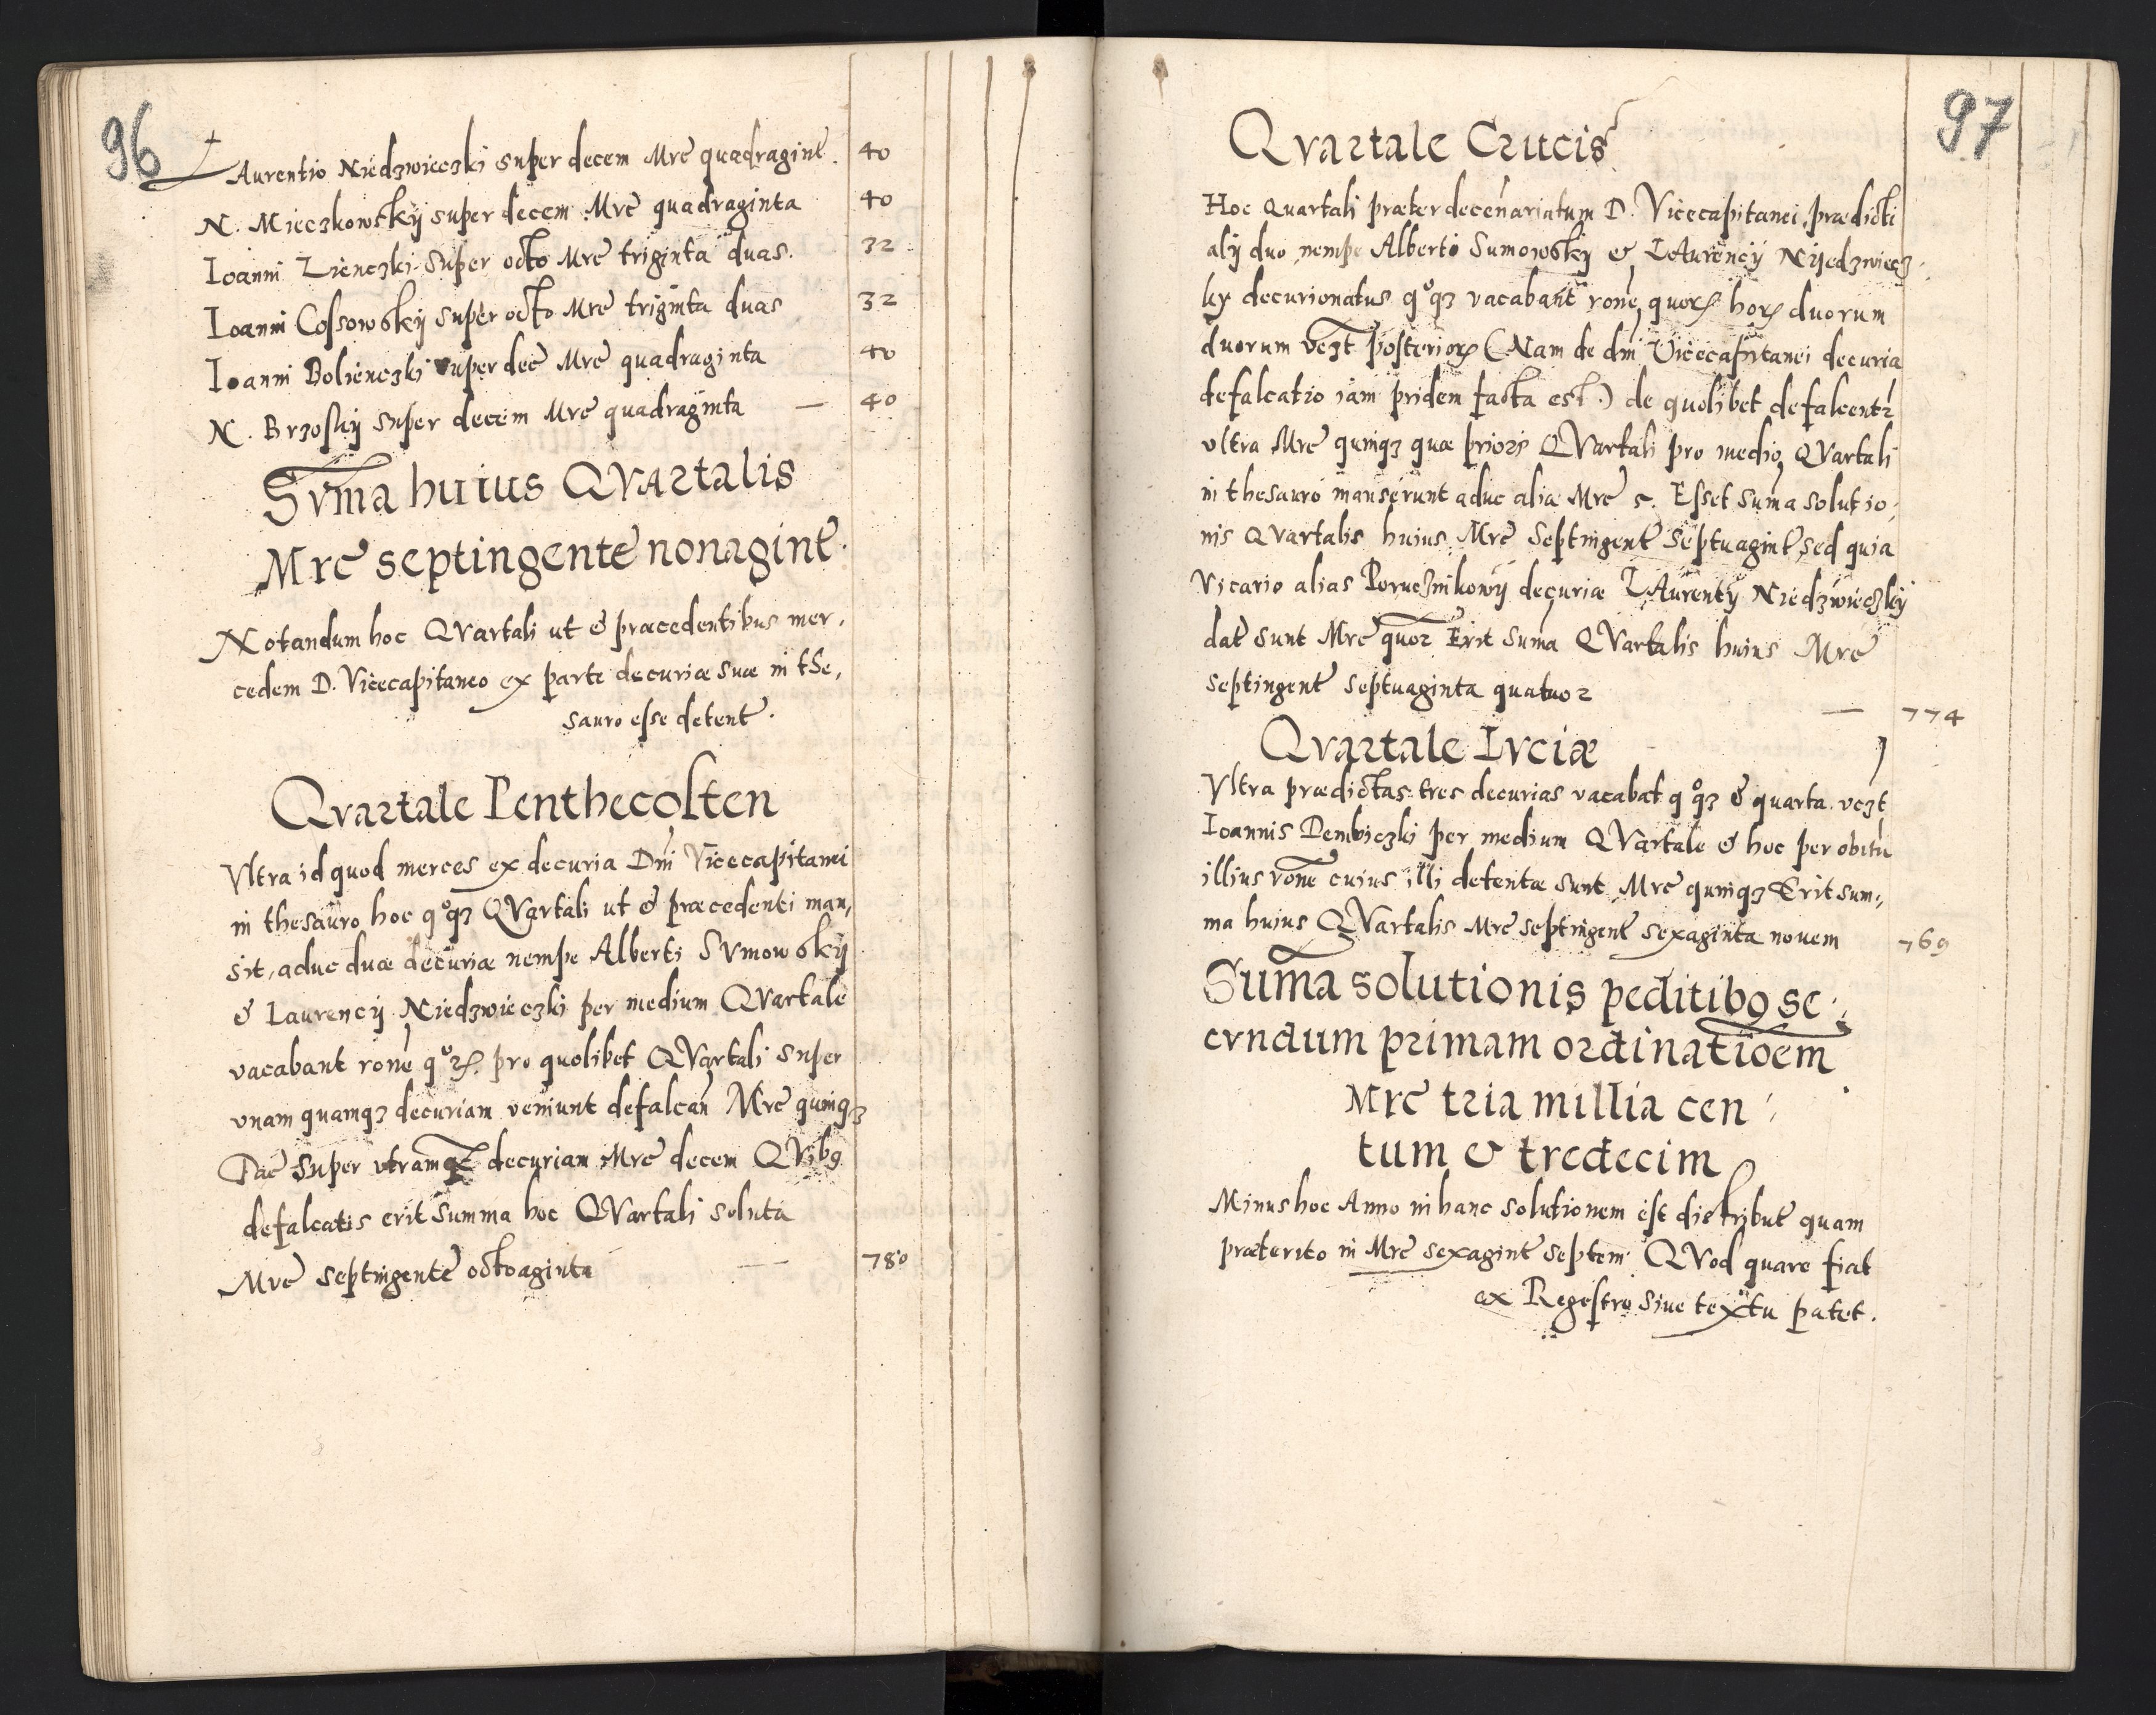 96
LAurentio Niedzwieczki super decem Mrc quadragint. 40
N. Mieczkowskij super decem Mrc quadraginta 40
Ioanni Lienczki super octo Mrc triginta duas. 32
Ioanni Cossowskij super octo Mrc triginta duas 32
Ioanni Bolienczki super dec Mrc quadraginta 40
N. Brzoskij super decem Mrc quadraginta — 40
Svma huius QVartalis
Mrc septingente nonagint.
Notandum hoc QVartali ut & præcedentibus mer,
cedem D. Vicecapitaneo ex parte decuriæ suæ in the,
sauro esse detent.
Qvartale Penthecosten
Vltra id quod merces ex decuria Dni Vicecapitanei
in thesauro hoc qoqz QVartali ut & præcedenti man,
sit, aduc duæ decuriæ nempe Alberti SVmowskij
& Laurencij Niedzwieczki per medium QVartale
vacabant rone qor. pro quolibet QVartali super
vnam quamqz decuriam veniunt defalcan Mrc quinqz
Fac super vtramqz decuriam Mrc decem QVib9
defalcatis erit Summa hoc QVartali soluta
Mrc septingente octoaginta — 780
97
Qvartale Crucis
Hoc Quartali præter decenariatum D. Vicecapitanei prædicti
alij duo nempe Alberti Sumowskij & LAurencij Nijedzwiecz,
ky decurionatus qoqz vacabant rone quor hor duorum
duorum vczt posterior (Nam de dni Vicecapitanei decuria
defalcatio iam pridem facta est.) de quolibet defalcentr
vltra Mrc quinqz quæ priori QVartali pro medio QVartali
in thesauro manserunt aduc aliæ Mrc 5. Esset suma solutio,
nis QVartalis huius Mrc Septingent Septuagint, sed quia
Vicario alias Porucznikowij decuriæ LAurentij Niedzwieczkij
dat sunt Mrc quor Erit Suma QVartalis huius Mrc
septingent septuaginta quatuor — 774
Qvartale Lvciæ
Vltra prædictas tres decurias vacabat qoqz & quarta vczt
Ioannis Dembiczki per medium QVartale & hoc per obitu
illius rone cuius illi detentæ sunt Mrc quinqz Erit sum,
ma huius QVartalis Mrc septingent sexaginta nouem 769
Suma solutionis peditib9 se,
cvndum primam ordinatioem
Mrc tria millia cen,
tum & tredecim
Minus hoc Anno in hanc solutionem est distribut quam
præterito in Mrc sexagint septem QVod quare fiat
ex Regestro siue textu patet.